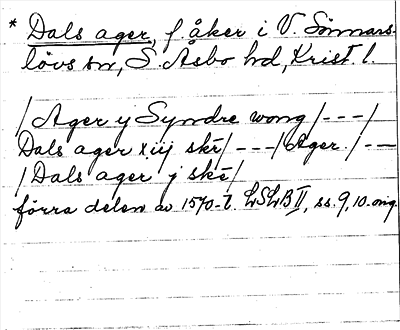 * Dals ager, f. åker i V. Sönnars-
lövs sn, S. Åsbo hd, Krist. l.
/Ager ij Syndre wong/---/
Dals ager xiij skr/---/Ager/--
/Dals ager j skr/
förra delen av 1570-t. LSLB II, ss. 9, 10. orig.